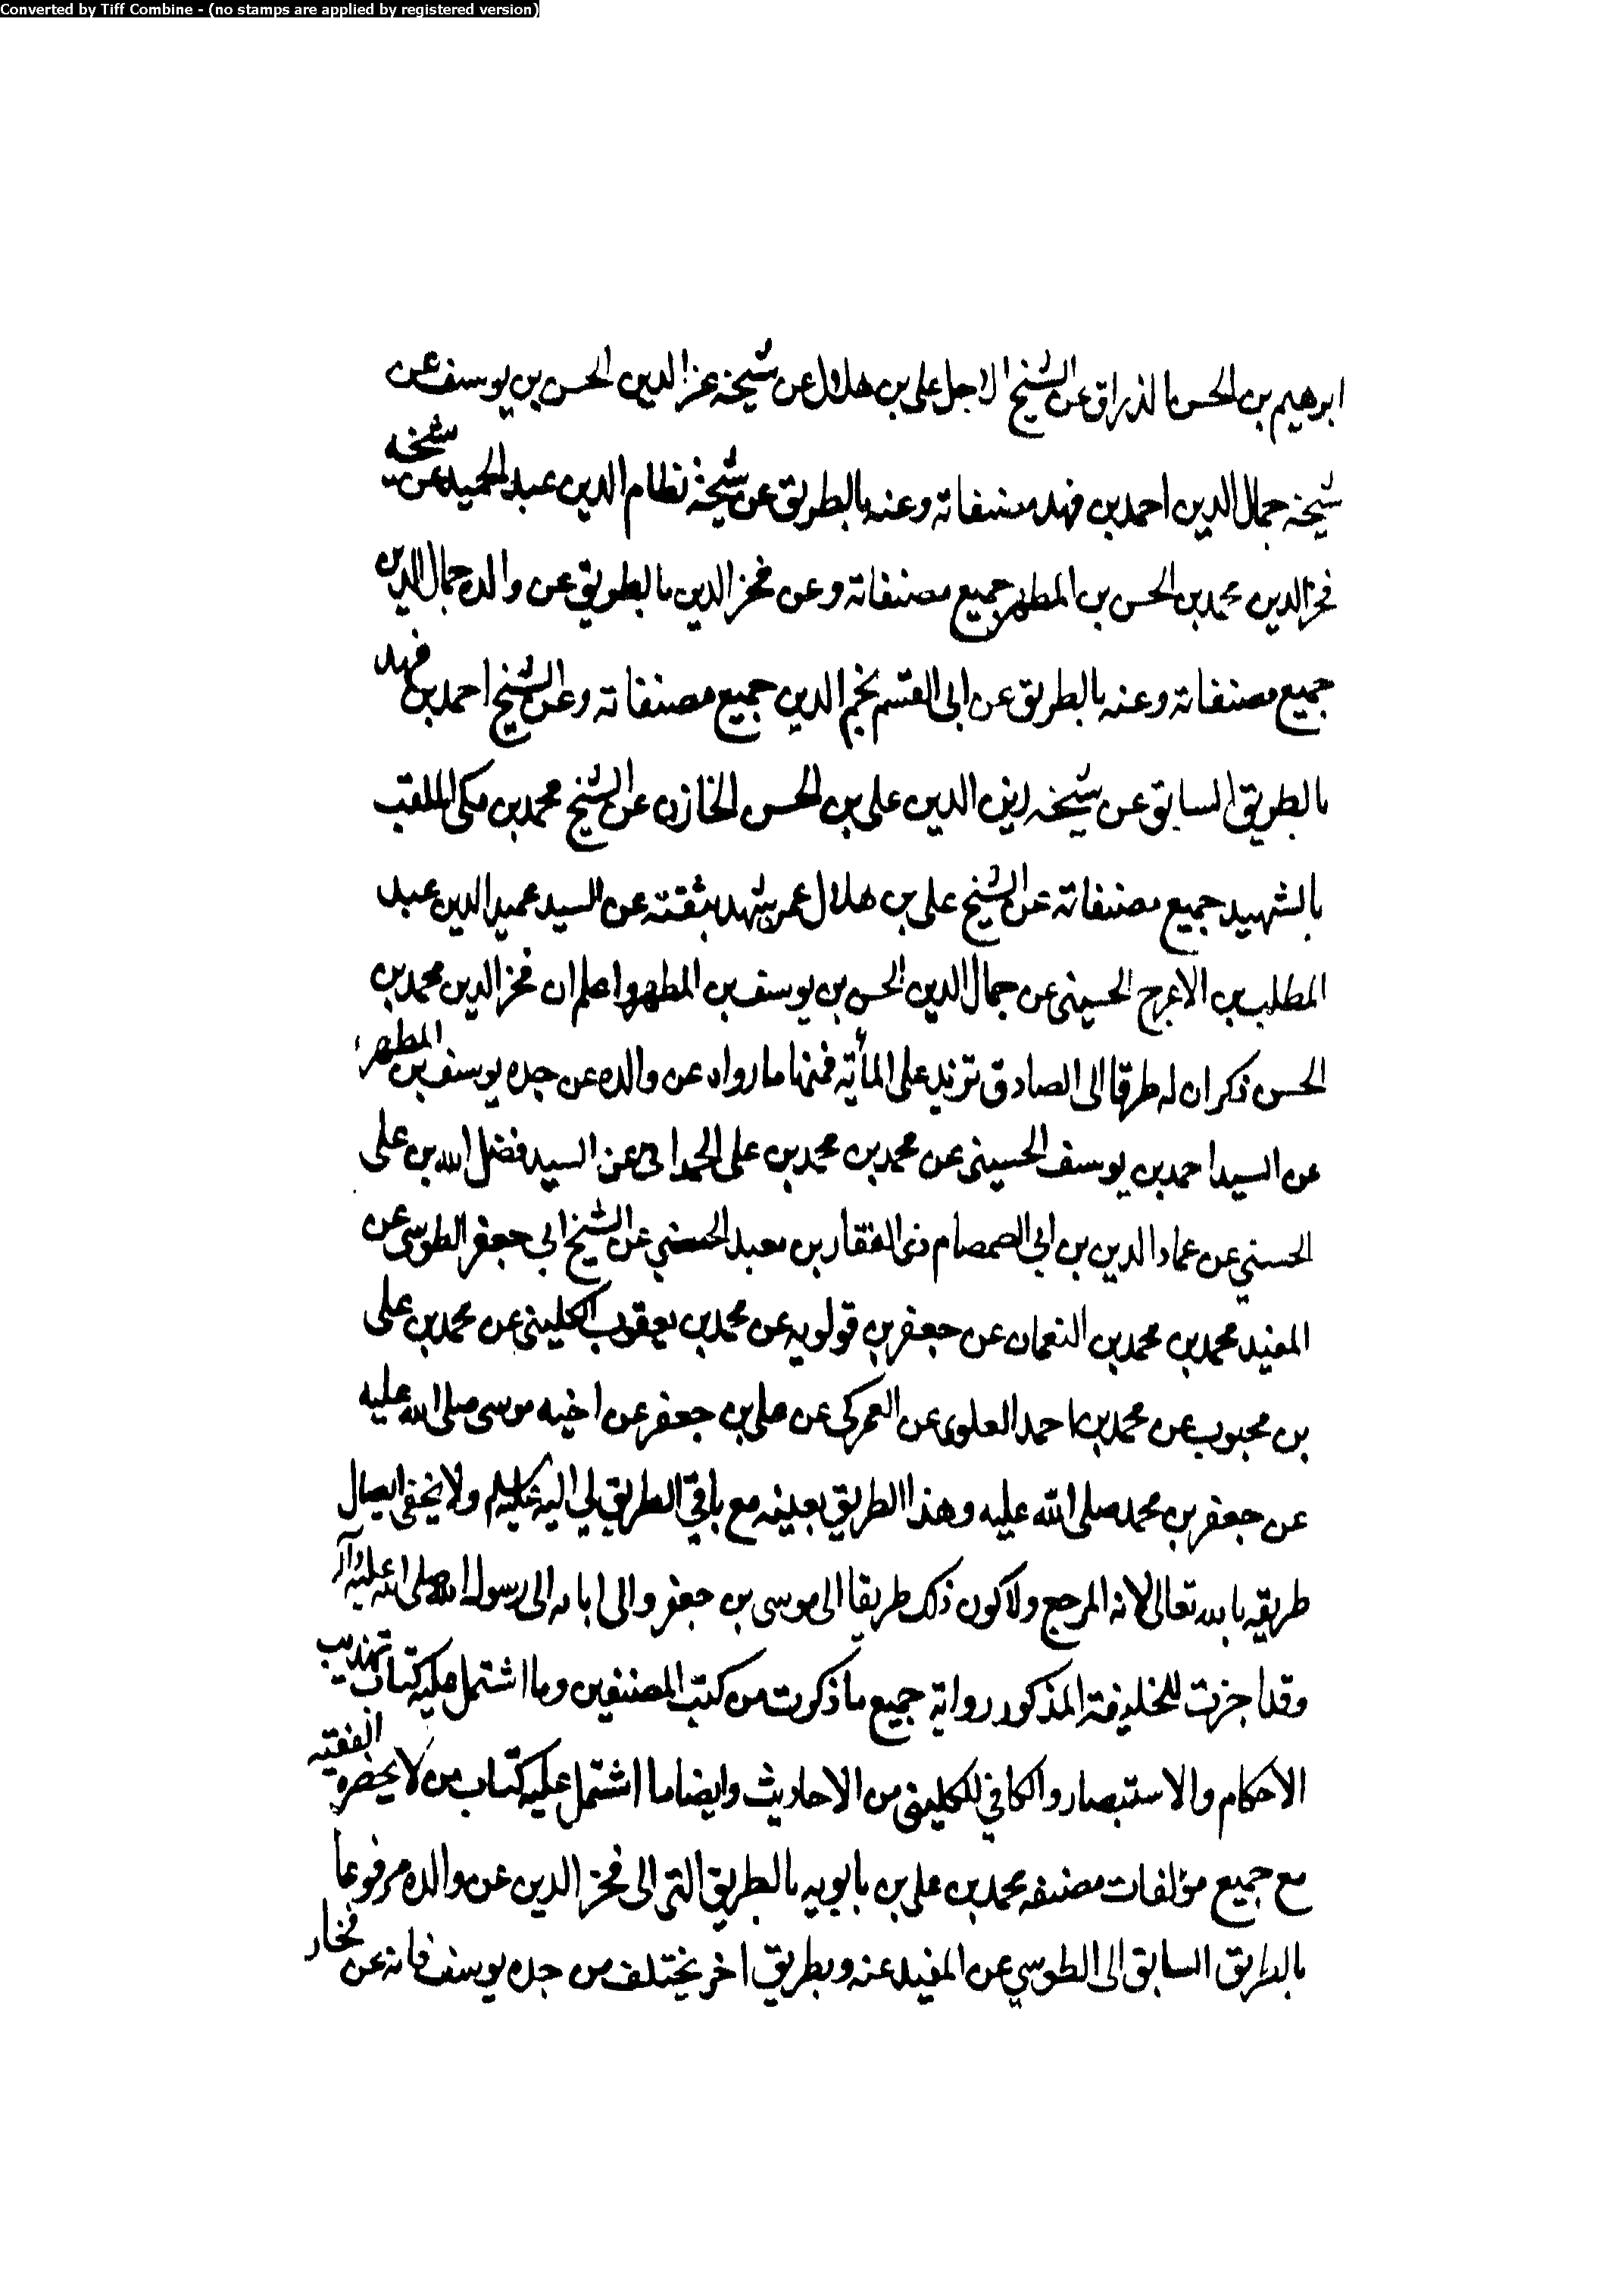 Converted by Tiff Combine - (no stamps are applied by registered version)
ابرهيم بن الحسن الذراق عن الشيخ الاجل على بن هلال عن شيخه عز الدين الحسن بن يوسف عن
شيخه جمال الدين احمد بن فهد مصنفاته وعنه بالطريق عن شيخه نظام الدين عبد الحميد عن شيخه
فخر الدين محمد بن الحسن بن المطهر جميع مصنفاته وعن فخر الدين بالطريق عن والده جمال الدين
جميع مصنفاته وعنه بالطريق عن ابى القسم نجم الدين جميع مصنفاته وعن الشيخ احمد بن فهد
بالطريق السابق عن شيخه زين الدين على بن الحسن الخازن عن الشيخ محمد بن مكى الملقب
بالشهيد جميع مصنفاته عن الشيخ على بن هلال عمن يشهد بثقته عن السيد عميد الدين عبد
المطلب بن الاعرج الحسينى عن جمال الدين الحسن بن يوسف بن المطهر واعلم ان فخر الدين محمد بن
الحسن ذكر ان له طرقا الى الصادق تزيد على المأية فمنها ما رواه عن والده عن جده يوسف بن المطهر
عن السيد احمد بن يوسف الحسينى عن محمد بن محمد بن على الحمدانى عن السيد فضل الله بن على
الحسني عن عماد الدين بن ابي الصمصام ذى الفقار بن معبد الحسني عن الشيخ ابي جعفر الطوسى عن
المفيد محمد بن محمد بن النعمان عن جعفر بن قولويه عن محمد بن يعقوب الكلينى عن محمد بن على
بن محبوب عن محمد بن احمد العلوى عن العمركى عن على بن جعفر عن اخيه موسى صلى الله عليه
عن جعفر بن محمد صلى الله عليه وهذا الطريق بعينه مع باقي الطريق لي اليه عليه السلم ولا يخفى ايصال
طريقه بالله تعالى لانه المرجع ولا كون ذلك طريقا الى موسى بن جعفر والى ابائه الى رسول الله صلى الله عليه وآله
وقد اجزت للخليفة المذكور رواية جميع ما ذكرت من كتب المصنفين وما اشتمل عليه كتاب تهذيب
الاحكام والاستبصار والكافي للكلينى من الاحاديث وايضا ما اشتمل عليه كتاب من لا يحضره الفقيه
مع جميع مؤلفات مصنفه محمد بن على بن بابويه بالطريق التى الى فخر الدين عن والده مرفوعا
بالطريق السابق الى الطوسي عن المفيد عنه وبطريق اخر يختلف من جده يوسف فانه عن فخار